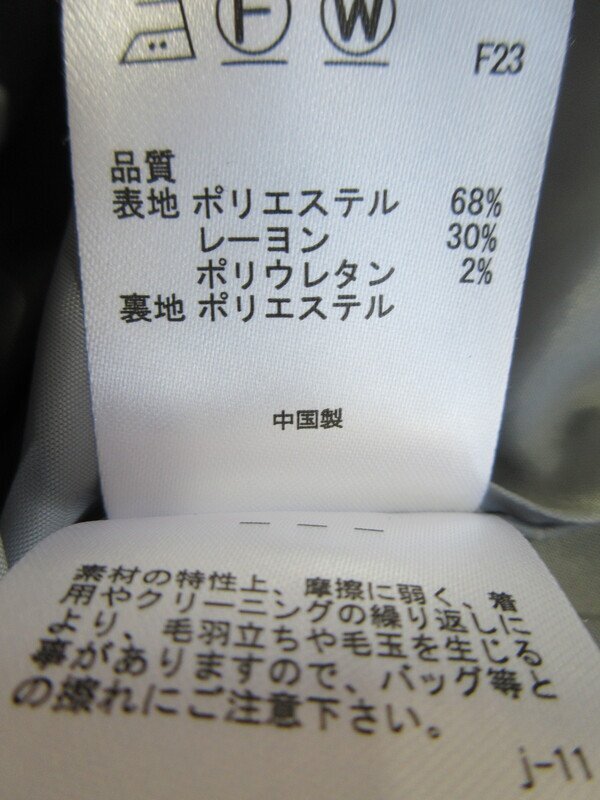 F W
F23
品質
表地 ポリエステル 68%
レーヨン 30%
ポリウレタン 2%
裏地 ポリエステル
中国製
素材の特性上、摩擦に弱く、着
用やクリーニングの繰り返しに
より、毛羽立ちや毛玉を生じる
事がありますので、バッグ等と
の擦れにご注意下さい。
j-11